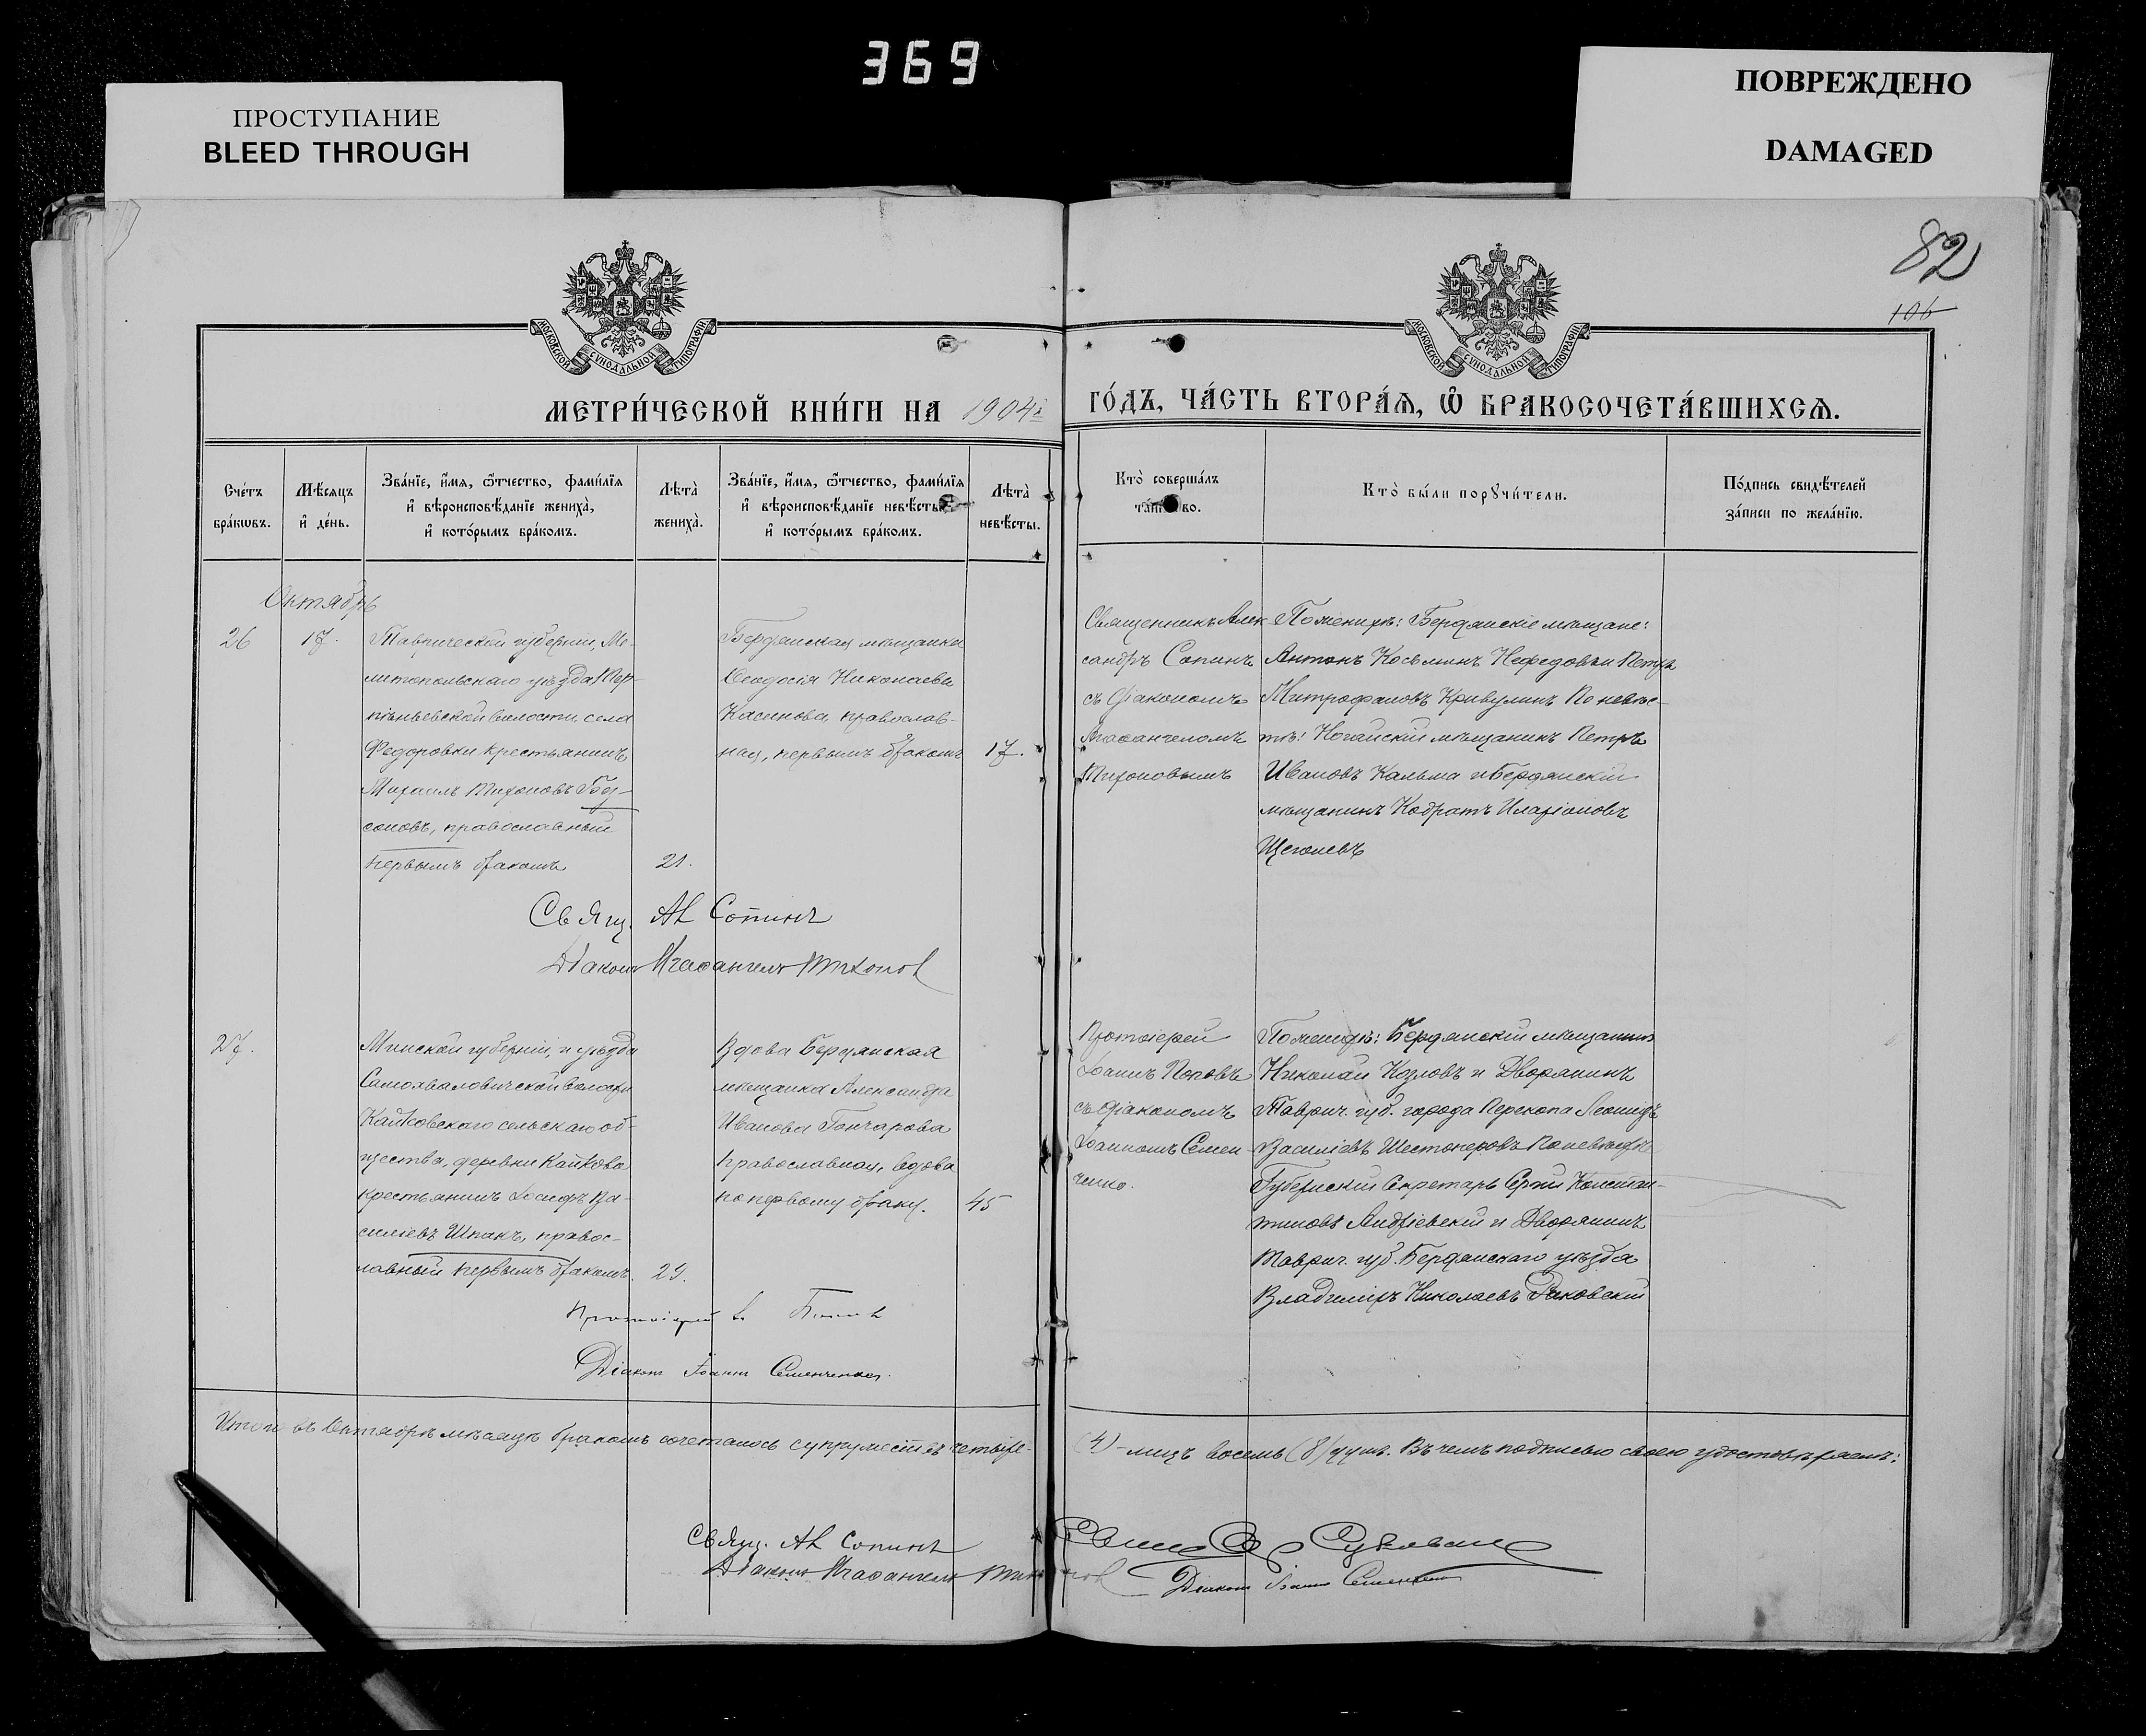 369
ПРОСТУПАНИЕ
BLEED THROUGH
ПОВРЕЖДЕНО
DAMAGED
82
106
МОСКОВСКОЙ СѴНОДАЛЬНОЙ ТИПОГРАФІИ
МОСКОВСКОЙ СѴНОДАЛЬНОЙ ТИПОГРАФІИ
МЕТРИ́ЧЕСКОЙ КНИ́ГИ НА 1904й
ГО́ДЪ, ЧА́СТЬ ВТОРА́Ѧ, Ѡ҆ БРАКОСОЧЕТА́ВШИХСѦ.
Сче́тъ бра́кѡвъ.
Мѣ́сяцъ и҆ де́нь.
Зва́нїе, и҆́мя, ѻ҆́тчество, фами́лїя и҆ вѣроисповѣ́данїе жениха̀, и҆ кото́рымъ бра́комъ.
Лѣта̀ жениха̀.
Зва́нїе, и҆́мя, ѻ҆́тчество, фами́лїя и҆ вѣроисповѣ́данїе невѣ́сты, и҆ кото́рымъ бра́комъ.
Лѣта̀ невѣ́сты.
Кто̀ соверша́лъ
Кто̀ бы́ли порꙋчи́тели.
По́дпись свидѣ́телей за́писи по жела́нїю.
Октябрь
26
17.
Таврической губерніи, Ме-
литопольскаго уѣзда
волости, села
Федоровки крестьянинъ
Михаилъ Тихоновъ
соновъ, православный
первымъ бракомъ
21.
Бердянская мѣщанка
Ѳеодосія Николаева
Касинова, православ-
ная, первымъ бракомъ
17.
Священникъ Алек-
сандръ Сопинъ
съ діакономъ
Агаѳангеломъ
Тихоновымъ
По женихѣ: Бердянскіе мѣщане:
Антонъ Косьминъ Нефедовъ и Петръ
Митрофановъ Кривулинъ По невѣс-
тѣ: Ногайскій мѣщанинъ Петръ
Ивановъ Кальма и Бердянскій
мѣщанинъ Кодратъ Иларіоновъ
Щеголевъ
Свящ. Ал Сопинъ
Діаконъ Агаѳангелъ Тихонов
27.
Минской губерніи, и уѣзда
Самохваловичской волости
Кайковскаго сельскаго об-
щества, деревни Кайкова
крестьянинъ Іосифъ Ва-
силіевъ Шпакъ, правос-
лавный первымъ бракомъ.
29.
Вдова Бердянская
мѣщанка Александра
Иванова Гончарова
православная, вдова
по первому браку.
45
Протоіерей
Іоаннъ Поповъ
съ діакономъ
Іоанномъ Семен-
ченко.
По женихѣ: Бердянскій мѣщанинъ
Николай Козловъ и Дворянинъ
Таврич. губ. города Перекопа Леонидъ
Василіевъ Шестоперовъ По невѣстѣ
Губернскій Секретарь Сергій Констан-
тиновъ Андріевскій и Дворянинъ
Таврич. губ. Бердянскаго уѣзда
Владиміръ Николаевъ Раковскій
Протоіерей І. Попов
Діаконъ Іоаннъ Семенченко.
Итого въ Октябрѣ мѣсяцѣ бракомъ сочеталось супружествъ четыре-
(4)-лицъ восемь (8) душъ. Въ чемъ подписью своею удостовѣряемъ:
Свящ. Ал Сопинъ
Діаконъ Агаѳангелъ Тихонов
Діаконъ Іоаннъ Семенченко